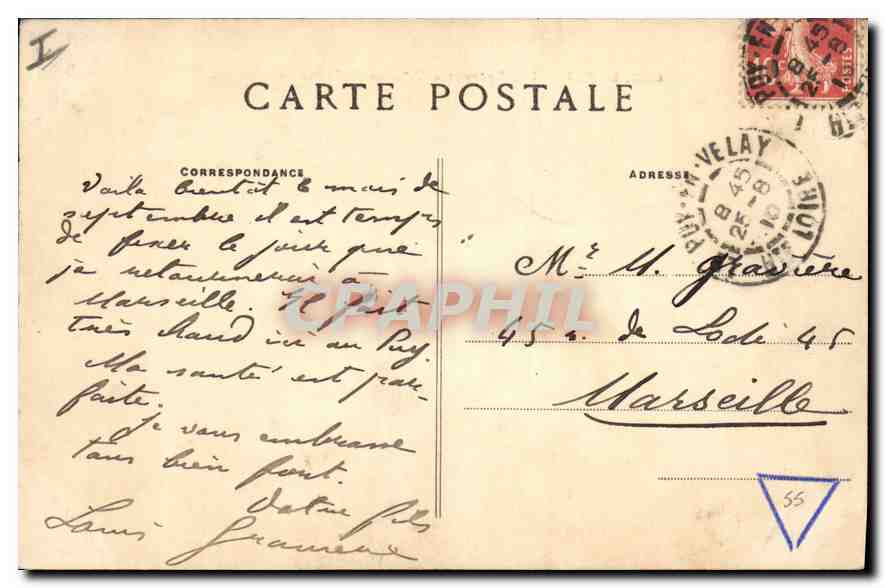 I
CARTE POSTALE
CORRESPONDANCE
Voila bientôt le mois de
septembre il est temps
de fixer le jour que
je retournerai à
Marseille. Il fait
très chaud ici au Puy.
Ma santé est par-
faite.
Je vous embrasse
tous bien fort.
Votre fils
Louis Gravière
ADRESSE
Mr M. Gravière
45 r. de Lodi 45
Marseille
PUY-EN-VELAY
8 45
25-8
10
HTE LOIRE
POSTES
8 45
25-8
CPAPHIL
55